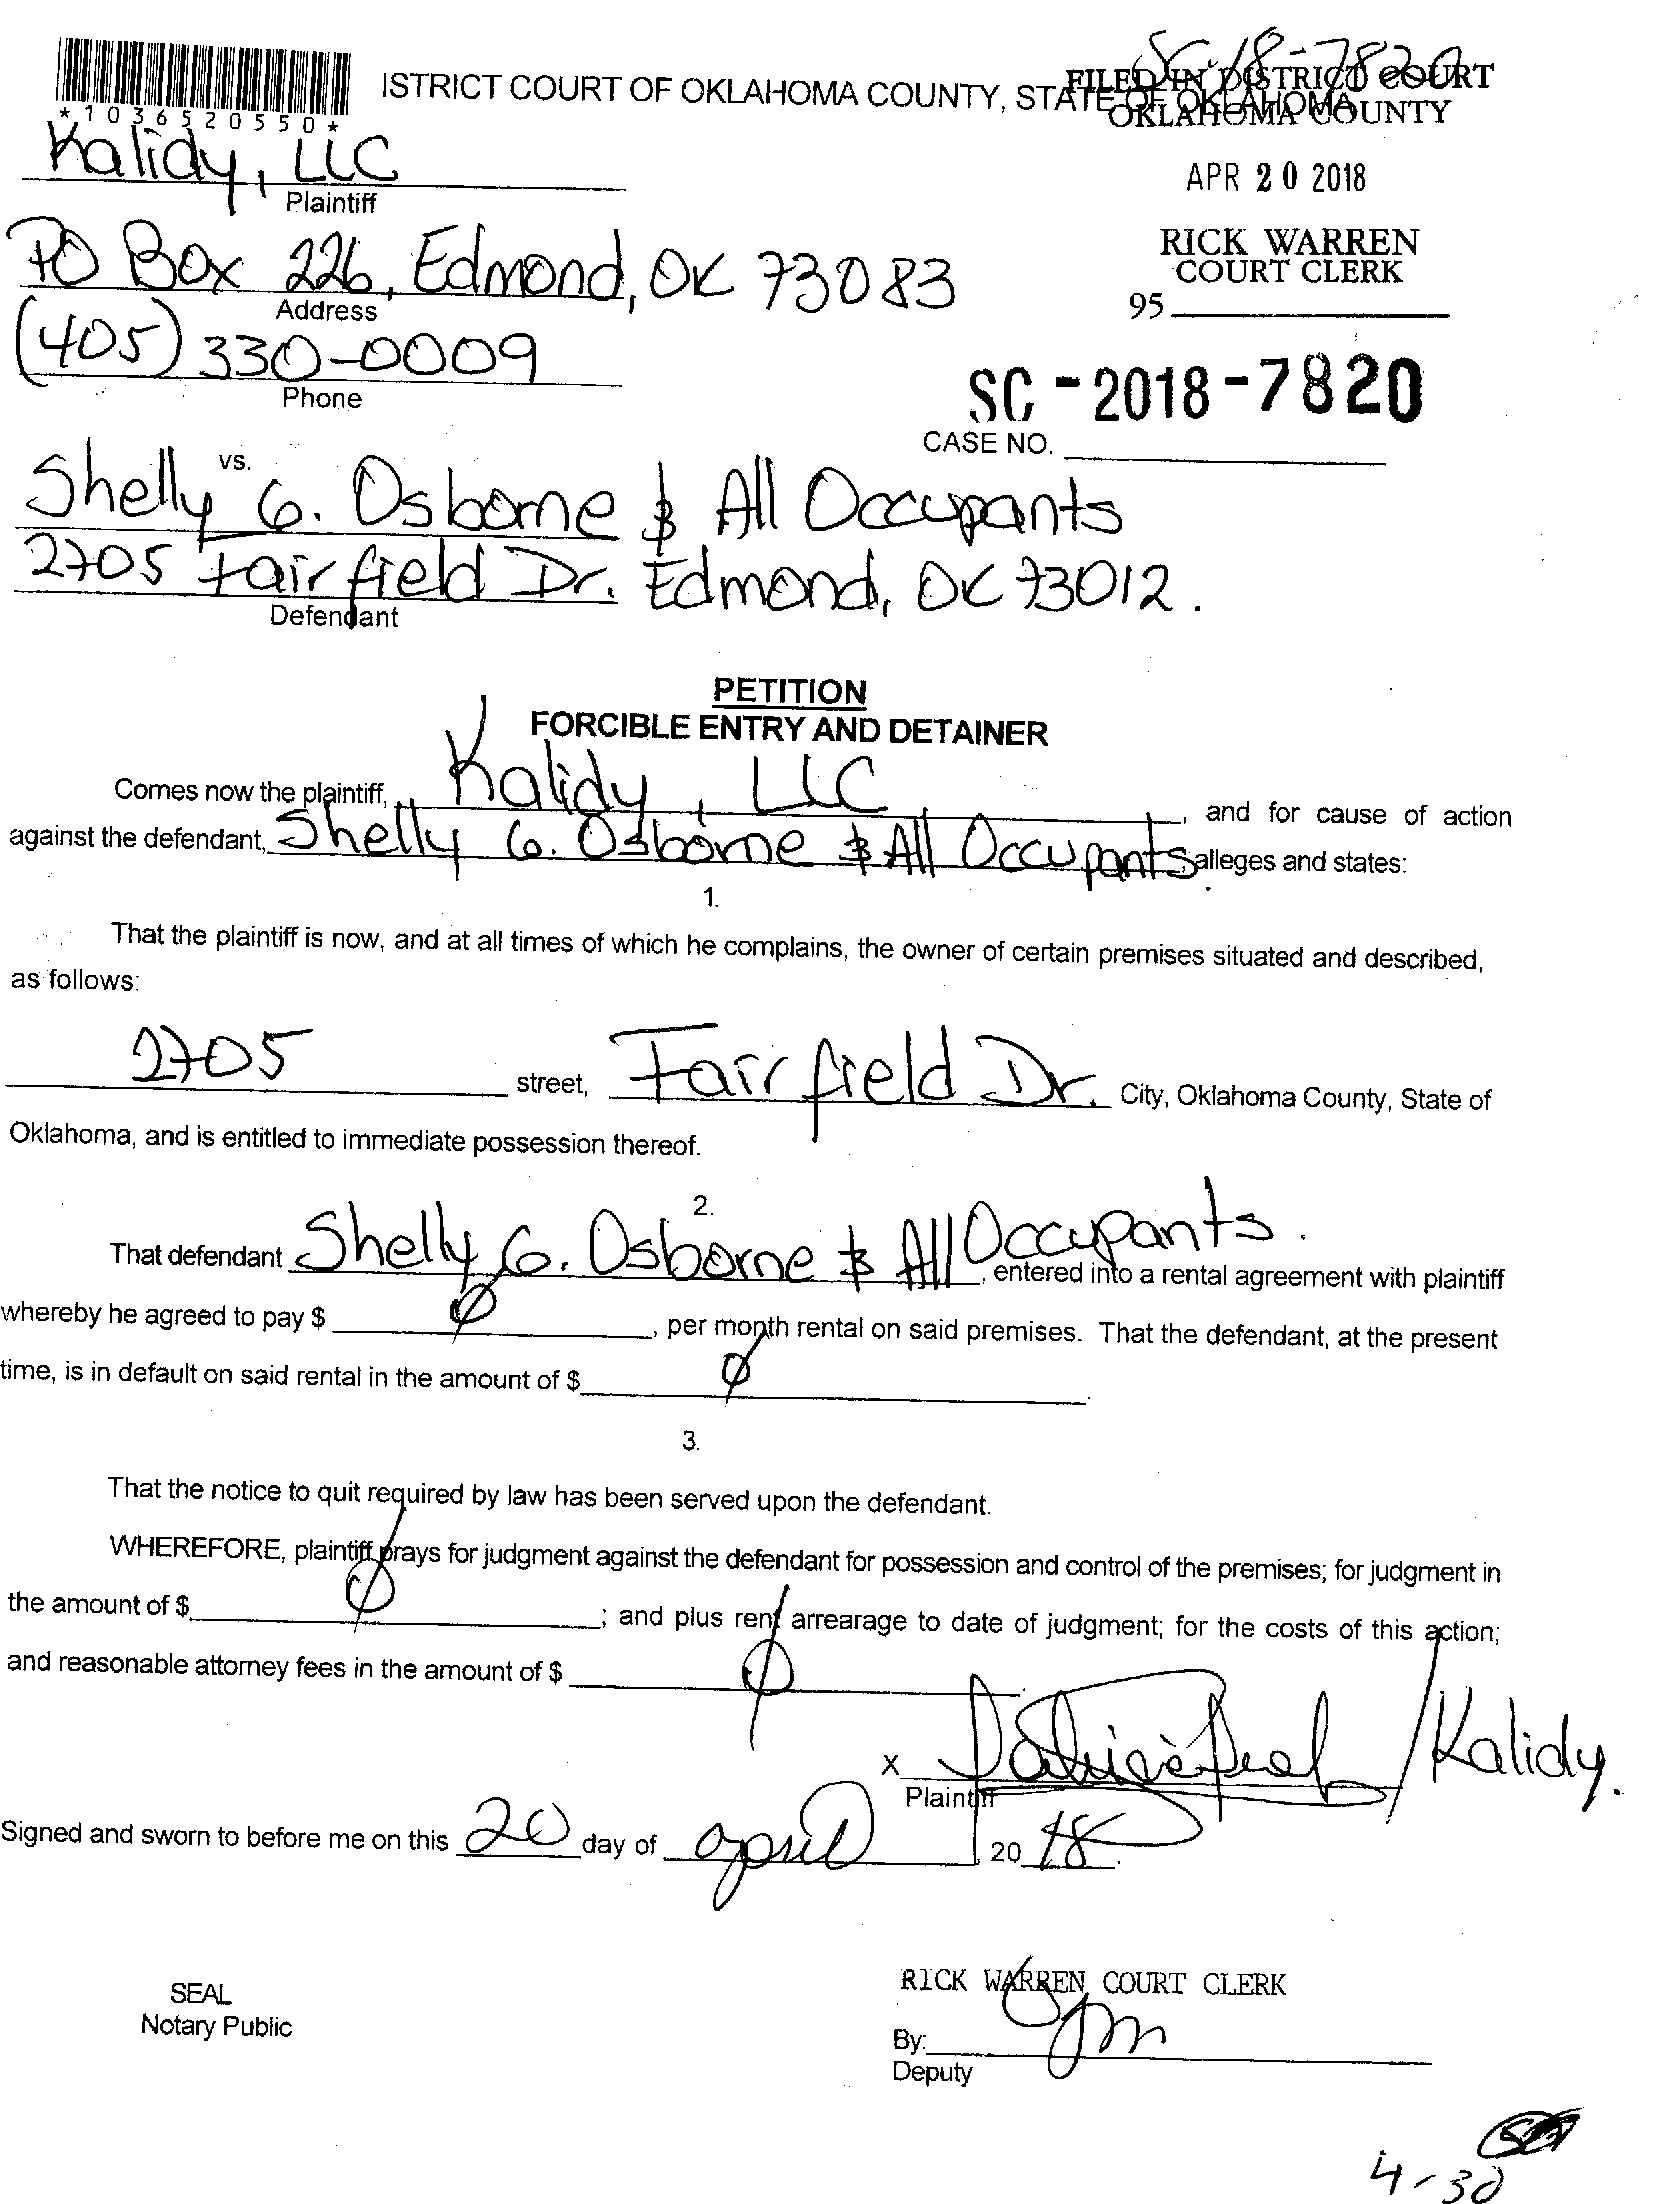 SC-18-7820
ISTRICT COURT OF OKLAHOMA COUNTY, STATE OF OKLAHOMA
FILED IN DISTRICT COURT
OKLAHOMA COUNTY
*1036520550*
Kalidy, LLC
Plaintiff
APR 20 2018
PO Box 226, Edmond, OK 73083
Address
RICK WARREN
COURT CLERK
95
(405) 330-0009
Phone
SC-2018-7820
CASE NO.
vs.
Shelly G. Osborne & All Occupants
2705 Fairfield Dr. Edmond, OK 73012.
Defendant
PETITION
FORCIBLE ENTRY AND DETAINER
Comes now the plaintiff, Kalidy, LLC, and for cause of action
against the defendant, Shelly G. Osborne & All Occupants alleges and states:
1.
That the plaintiff is now, and at all times of which he complains, the owner of certain premises situated and described,
as follows:
2705 street, Fairfield Dr. City, Oklahoma County, State of
Oklahoma, and is entitled to immediate possession thereof.
2.
That defendant Shelly G. Osborne & All Occupants., entered into a rental agreement with plaintiff
whereby he agreed to pay $ Ø, per month rental on said premises. That the defendant, at the present
time, is in default on said rental in the amount of $ Ø
3.
That the notice to quit required by law has been served upon the defendant.
WHEREFORE, plaintiff prays for judgment against the defendant for possession and control of the premises; for judgment in
the amount of $ Ø; and plus rent arrearage to date of judgment; for the costs of this action;
and reasonable attorney fees in the amount of $ Ø.
X /Kalidy.
Plaintiff
Signed and sworn to before me on this 20 day of april, 20 18.
SEAL
Notary Public
RICK WARREN COURT CLERK
By:
Deputy
4-30